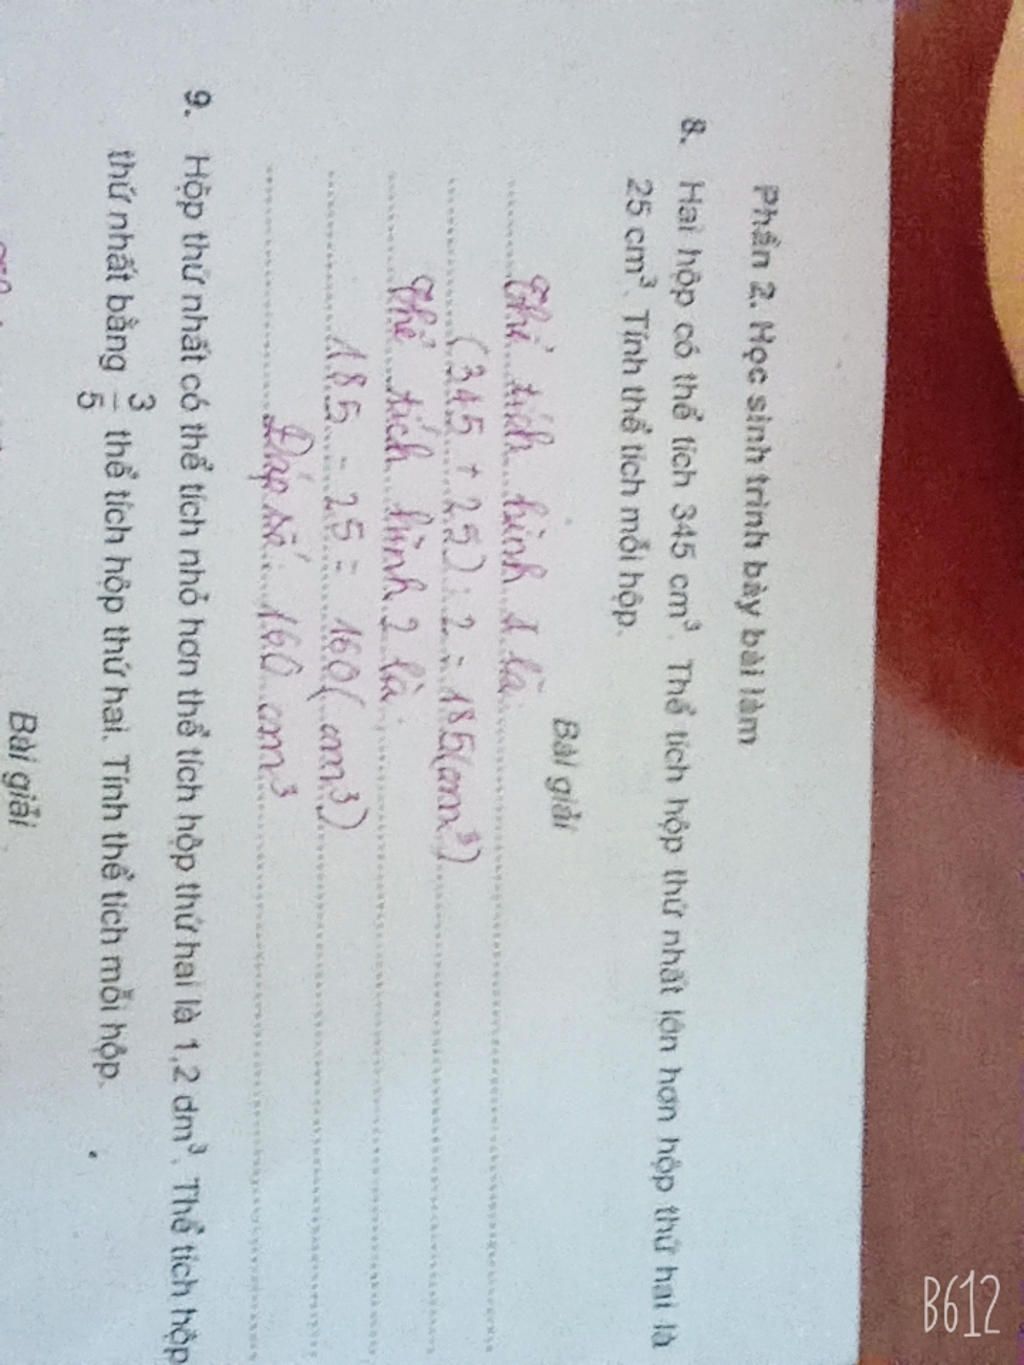 Phần 2. Học sinh trình bày bài làm
8. Hai hộp có thể tích 345 cm³. Thể tích hộp thứ nhất lớn hơn hộp thứ hai là
25 cm³. Tính thể tích mỗi hộp.
Bài giải
Thể tích hình 1 là
(345 + 25) : 2 = 185 (cm³)
Thể tích hình 2 là:
185 - 25 = 160 (cm³)
Đáp số: 160 cm³
9. Hộp thứ nhất có thể tích nhỏ hơn thể tích hộp thứ hai là 1,2 dm³. Thể tích hộp
thứ nhất bằng 3/5 thể tích hộp thứ hai. Tính thể tích mỗi hộp.
Bài giải
B612